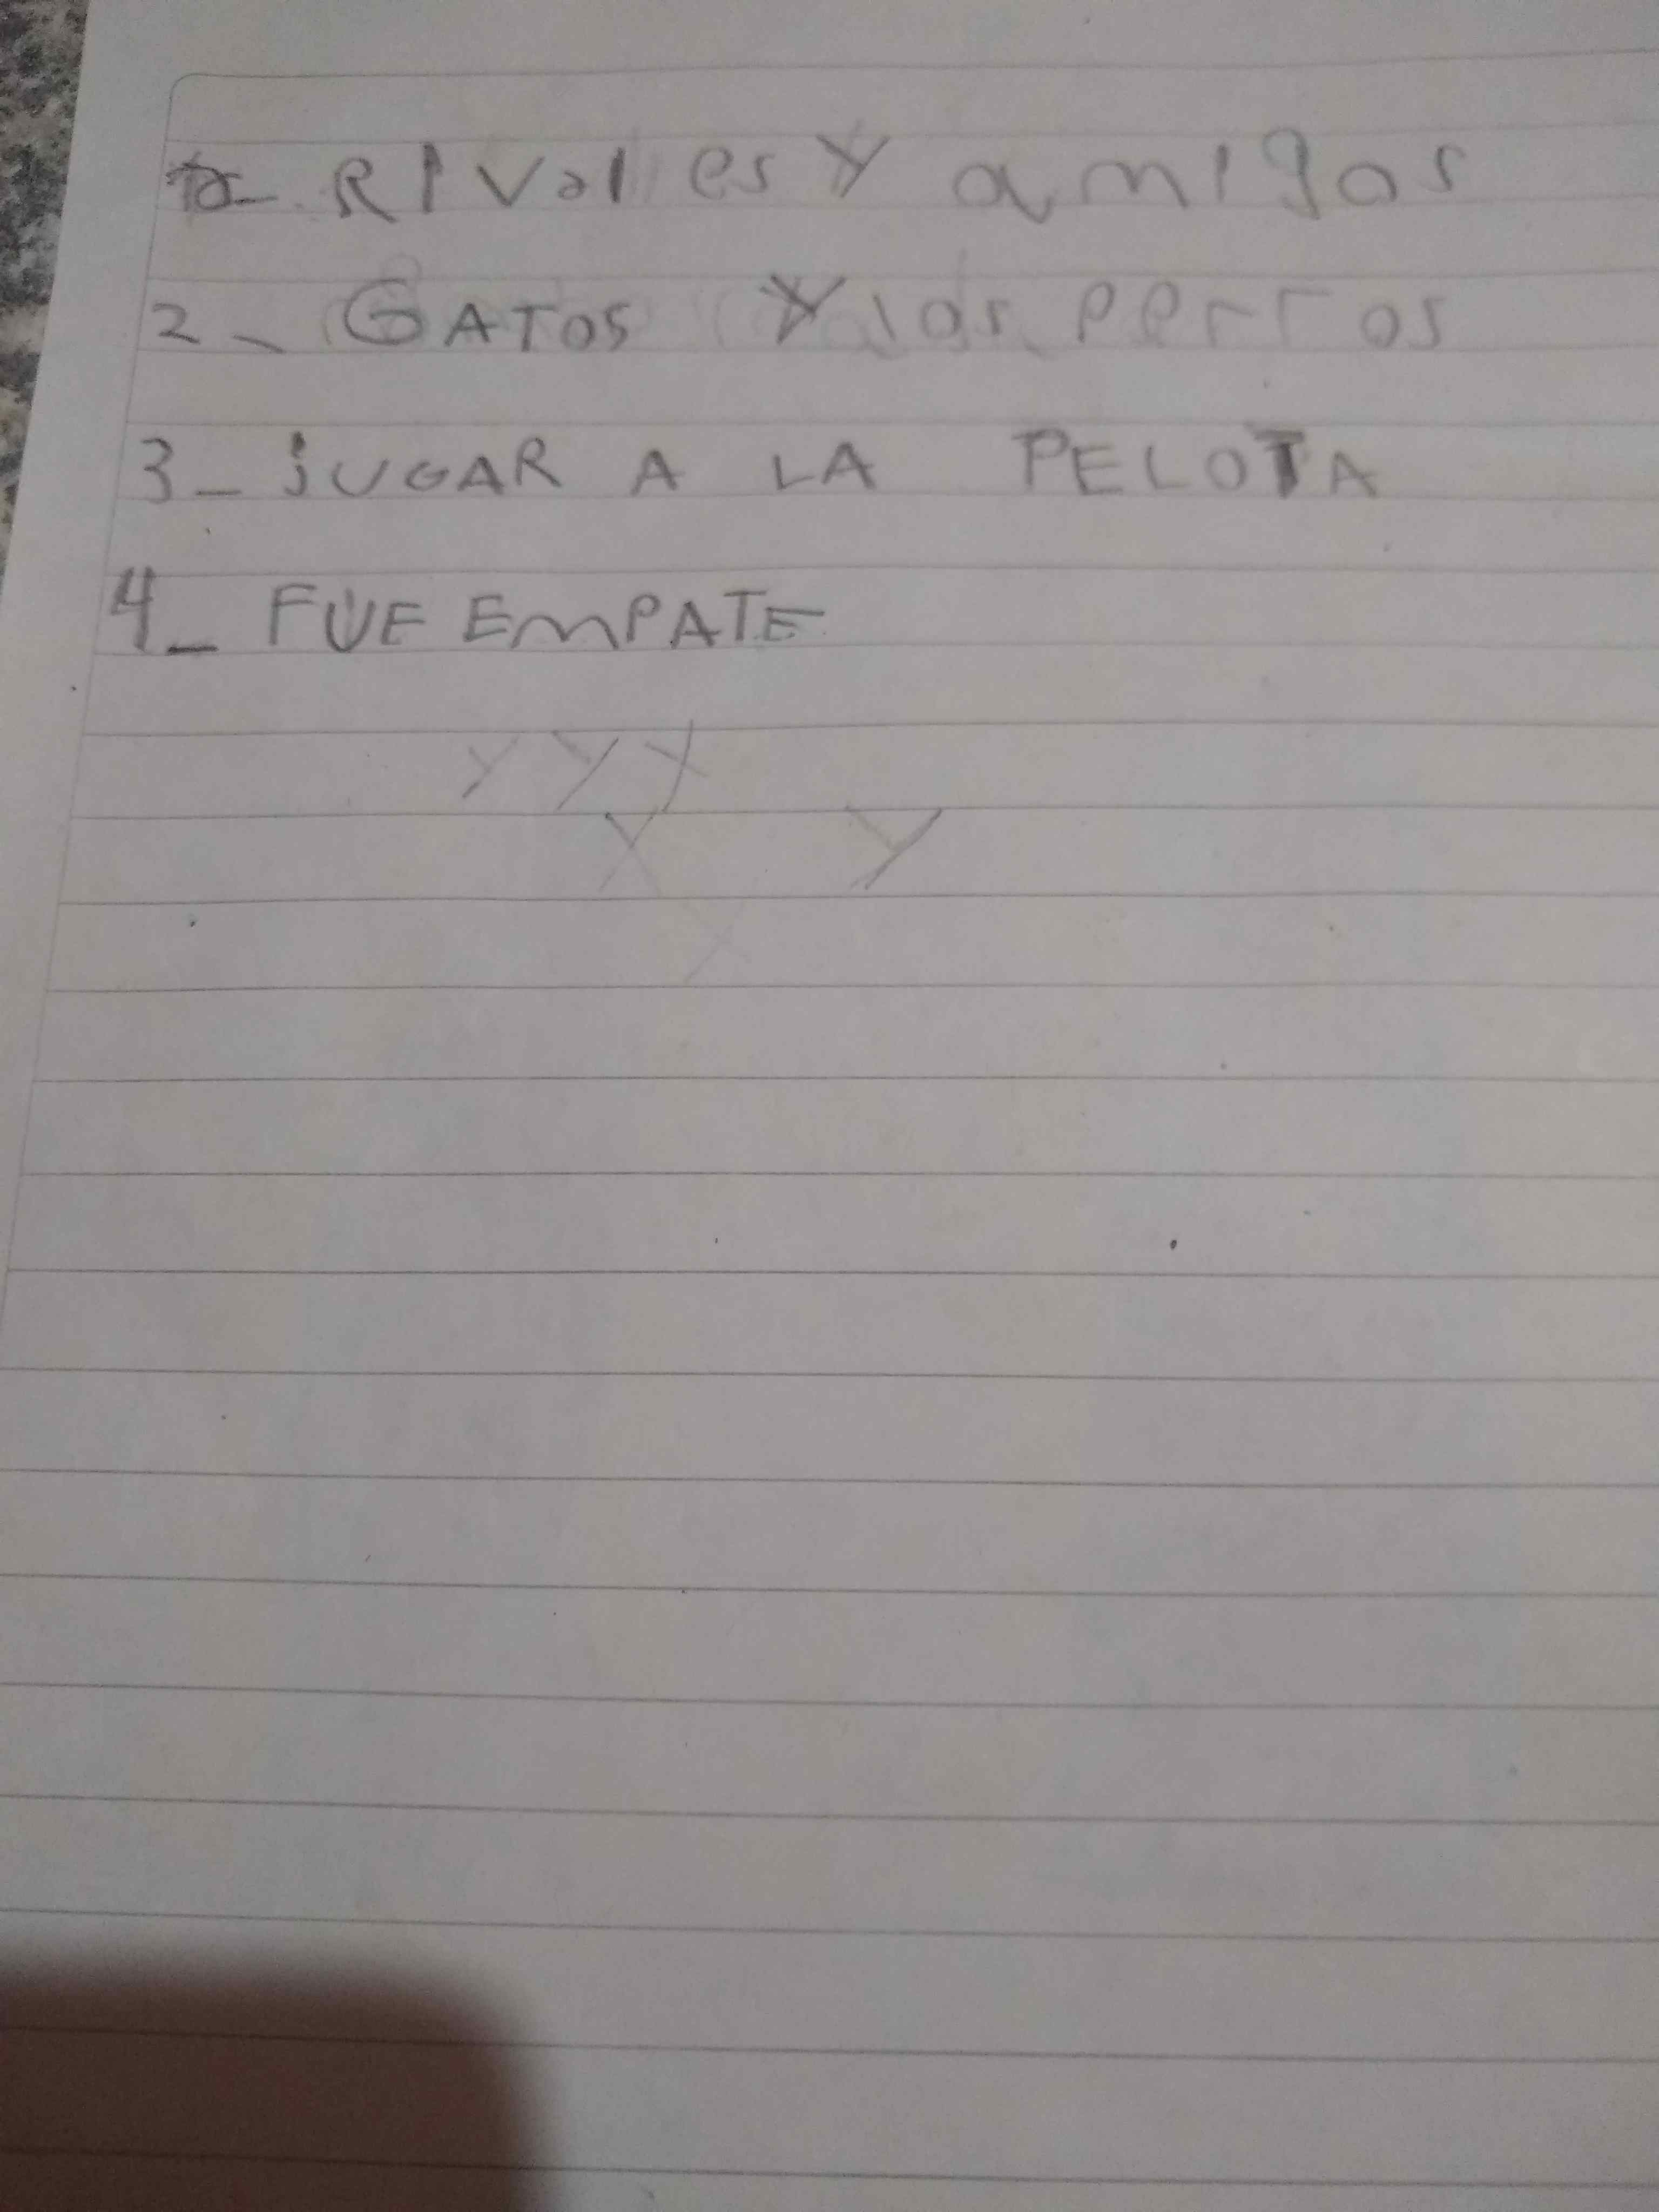 RIVales Y amigos
2_ GATOS Y los perros
3_ jUGAR A LA PELOTA
4_ FUE EMPATE
y y y
y y